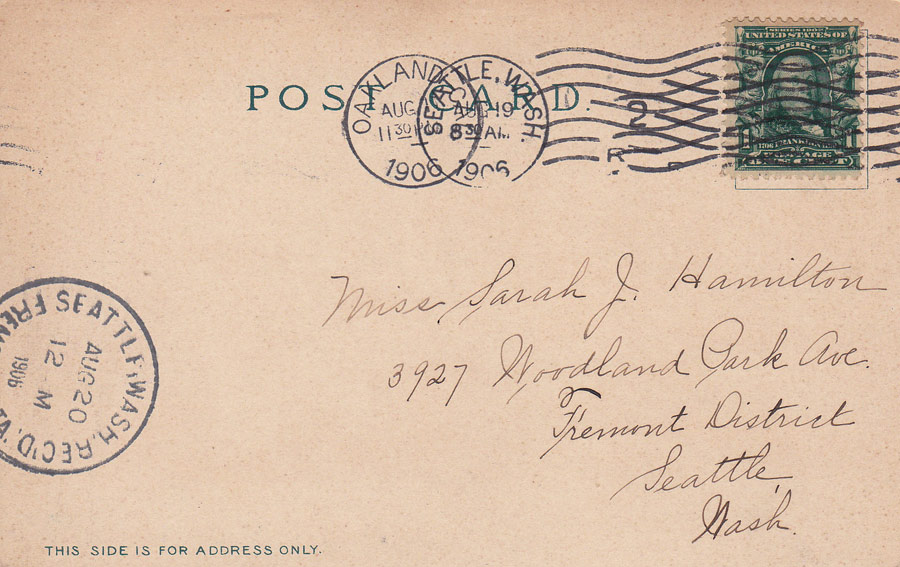 POST CARD.
OAKLAND
AUG
11 30 P
1906
SEATTLE, WASH.
AUG 19
8 30 AM.
1906
2
SERIES 1902
UNITED STATES OF
AMERICA
FRANKLIN
POSTAGE
SEATTLE, WASH. REC'D.
AUG 20
12 M
1906
Miss Sarah J. Hamilton
3927 Woodland Park Ave.
Fremont District
Seattle,
Wash.
THIS SIDE IS FOR ADDRESS ONLY.